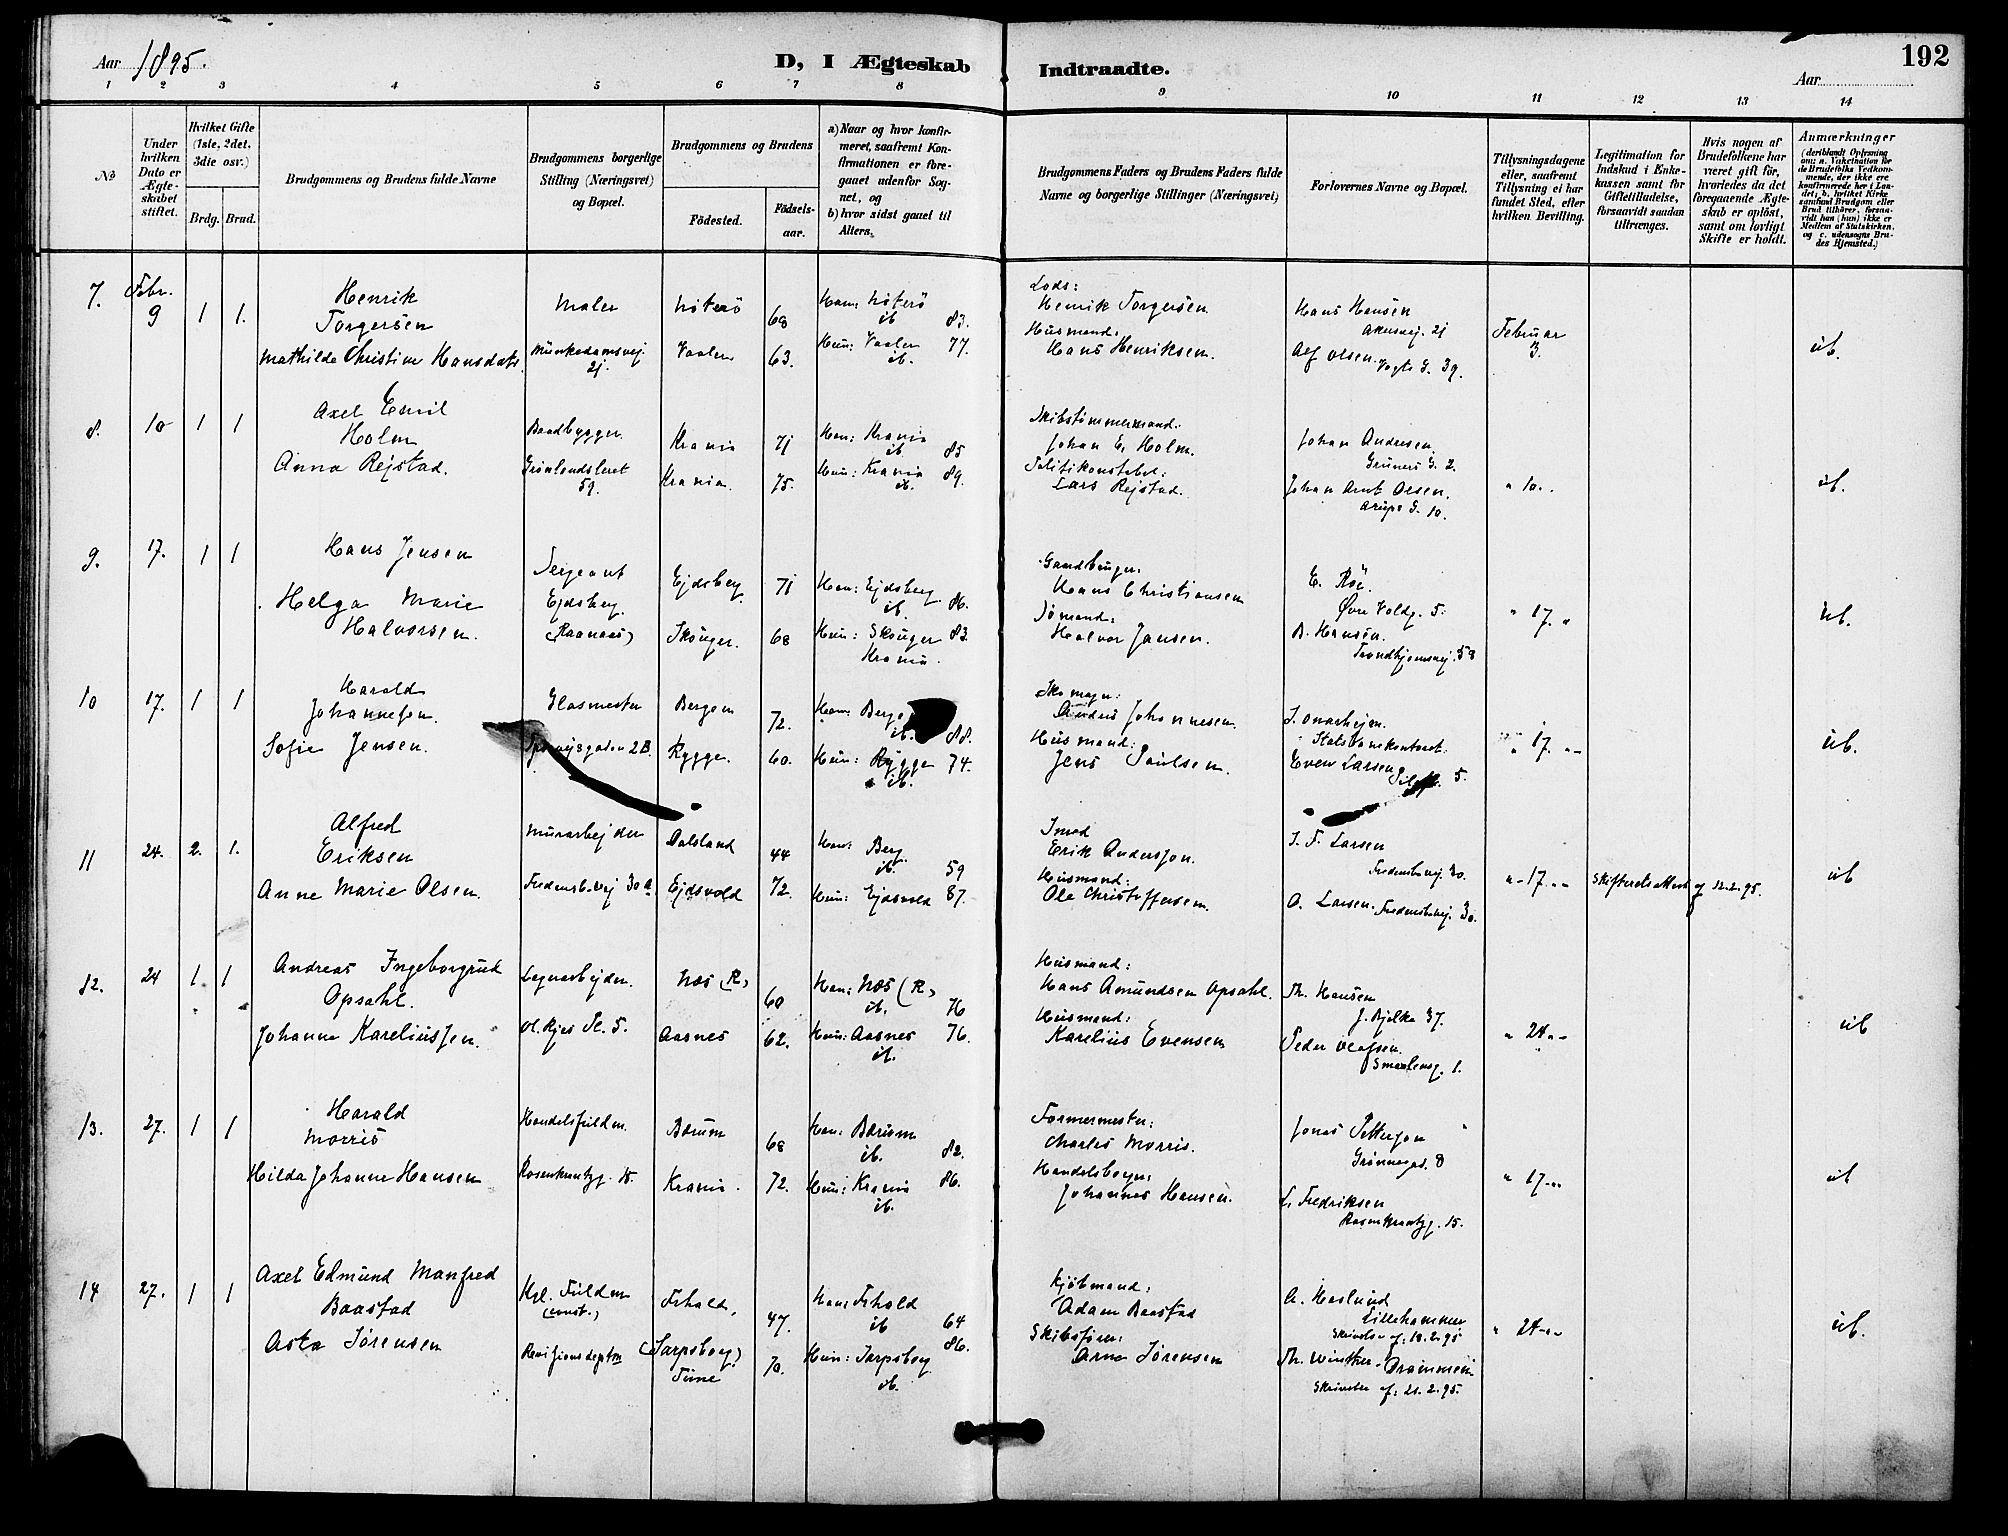 Aar 1895.
D, I Ægteskab Indtraadte.
Aar
192
1 2 3 4 5 6 7 8 9 10 11 12 13 14
No
Under hvilken Dato er Ægteskabet stiftet.
Hvilket Gifte (1ste, 2det, 3die osv.)
Brdg. Brud.
Brudgommens og Brudens fulde Navne
Brudgommens borgerlige Stilling (Næringsvei) og Bopæl.
Brudgommens og Brudens
Födested.
Födselsaar.
a) Naar og hvor konfirmeret, saafremt Konfirmationen er foregaaet udenfor Sognet, og
b) hvor sidst gaaet til Alters.
Brudgommens Faders og Brudens Faders fulde Navne og borgerlige Stillinger (Næringsvei)
Forlovernes Navne og Bopæl.
Tillysningsdagene eller, saafremt Tillysning ei har fundet Sted, efter hvilken Bevilling.
Legitimation for Indskud i Enkekassen samt for Giftetilladelse, forsaavidt saadan tiltrænges.
Hvis nogen af Brudefolkene har været gift för, hvorledes da det foregaaende Ægteskab er oplöst, samt om lovligt Skifte er holdt.
Anmærkninger
(deriblandt Oplysning om: a. Vakcination for de Brudefolks Vedkommende, der ikke ere konfirmerede her i Landet; b. hvilket Kirkesamfund Brudgom eller Brud tilhörer, forsaavidt han (hun) ikke er Medlem af Statskirken, og c. udensogns Brudes Hjemsted.)
7. Febr. 9 1 1.
Henrik Torgersen
Maler Nöterö 68 Han: Nöterö ib 83.
Lods: Henrik Torgersen
Hans Hansen Akersvej. 21
Februar 3.
ib.
Mathilda Christine Hansdatr.
Munkedamsvej. 21. Vaaler 63. Hun: Vaaler ib. 77.
Husmand: Hans Henriksen.
Alf Olsen. Vogts G. 39.
8. 10 1 1
Axel Emil Holm
Baadbygger Krania 71 Han: Krania ib 85
Skibstömmermand: Johan E. Holm.
Johan Andresen Grüners G. 2.
" 10. .
ib.
Anna Rejstad.
Grönlandsleret 59. Krania. 75. Hun: Krania ib. 89.
Politikonstabel: Lars Rejstad.
Johan Arnt Olsen. Arups G. 10.
9. 17. 1 1
Hans Jensen
Sergeant Ejdsberg. Ejdsberg 71 Han: Ejdsberg ib. 86.
Gaardbruger. Hans Christiansen
E. Röe Övre Voldg. 5.
" 17. "
ib.
Helga Marie Halvorsen.
(Raanaas) Skouger. 68 Hun: Skouger Krania. 83.
Sömand: Halvor Jansen.
B. Hansen. Trondhjemsvej. 53
10 17. 1 1
Harald Johannesen.
Glasmester Bergen 72. Han: Berge ib. 88.
Skomagr: Anders Johannesen.
Statsbanekontoret.
" 17. "
ib.
Sofie Jensen.
2B. Rygge. 60. Hun: Rygge ib. 74.
Husmand: Jens Paulsen.
Even Larsen 5.
11 24. 2. 1.
Alfred Eriksen
Murarbejder Dalsland 44 Han: Berg. ib. 59
Smed Erik Andersson.
J. F. Larsen Fredensb.vej. 30.
" 17. "
Skifteretsattest af 12.2.95.
ib
Anne Marie Olsen.
Fredensb.vej 30 a Ejdsvold 72. Hun: Ejdsvold 87.
Husmand: Ole Christoffersen.
O. Larsen. Fredensb.vej. 30.
12. 24 1 1
Andreas Ingeborgrud Opsahl.
Løgnarbejder. Næs (R) 60 Han: Næs (R) ib. 76
Husmand: Hans Amundsen Opsahl.
Th. Hansen J. Bjelke 37.
" 24 "
ib
Johanne Kareliussen.
Ol. Ryes Pl. 5. Aasnes 62. Hun: Aasnes ib. 76.
Husmand: Karelius Evensen
Peder Olafsen. Smaalensg. 1.
13. 27. 1 1
Harald Morris
Handelsfuldm. Bærum 68 Han: Bærum ib. 82.
Formermester: Charles Morris.
Jonas Petterson Grönnegd. 8
" 17. "
ib
Hilda Johanne Hansen
Rosenkrantzg. 15. Krania. 72. Hun: Krania ib. 86.
Handelsborger: Johannes Hansen.
L. Fredriksen Rosenkrantzg. 15.
14 27. 1 1
Axel Edmund Manfred Baastad
Kgl. Fuldm (const.) Frhald. 47. Han: Frhald ib 64
Kjöbmand: Adam Baastad
A. Haslund Lillehammer Skrivelse af: 18.2.95
" 24 "
ib.
Asta Sörensen
Revisionsdeptm (Sarpsborg) Tune 70. Hun: Sarpsborg ib. 86.
Skibsförer: Arne Sörensen
Th. Winther. Drammen Skrivelse af: 21.2.95.